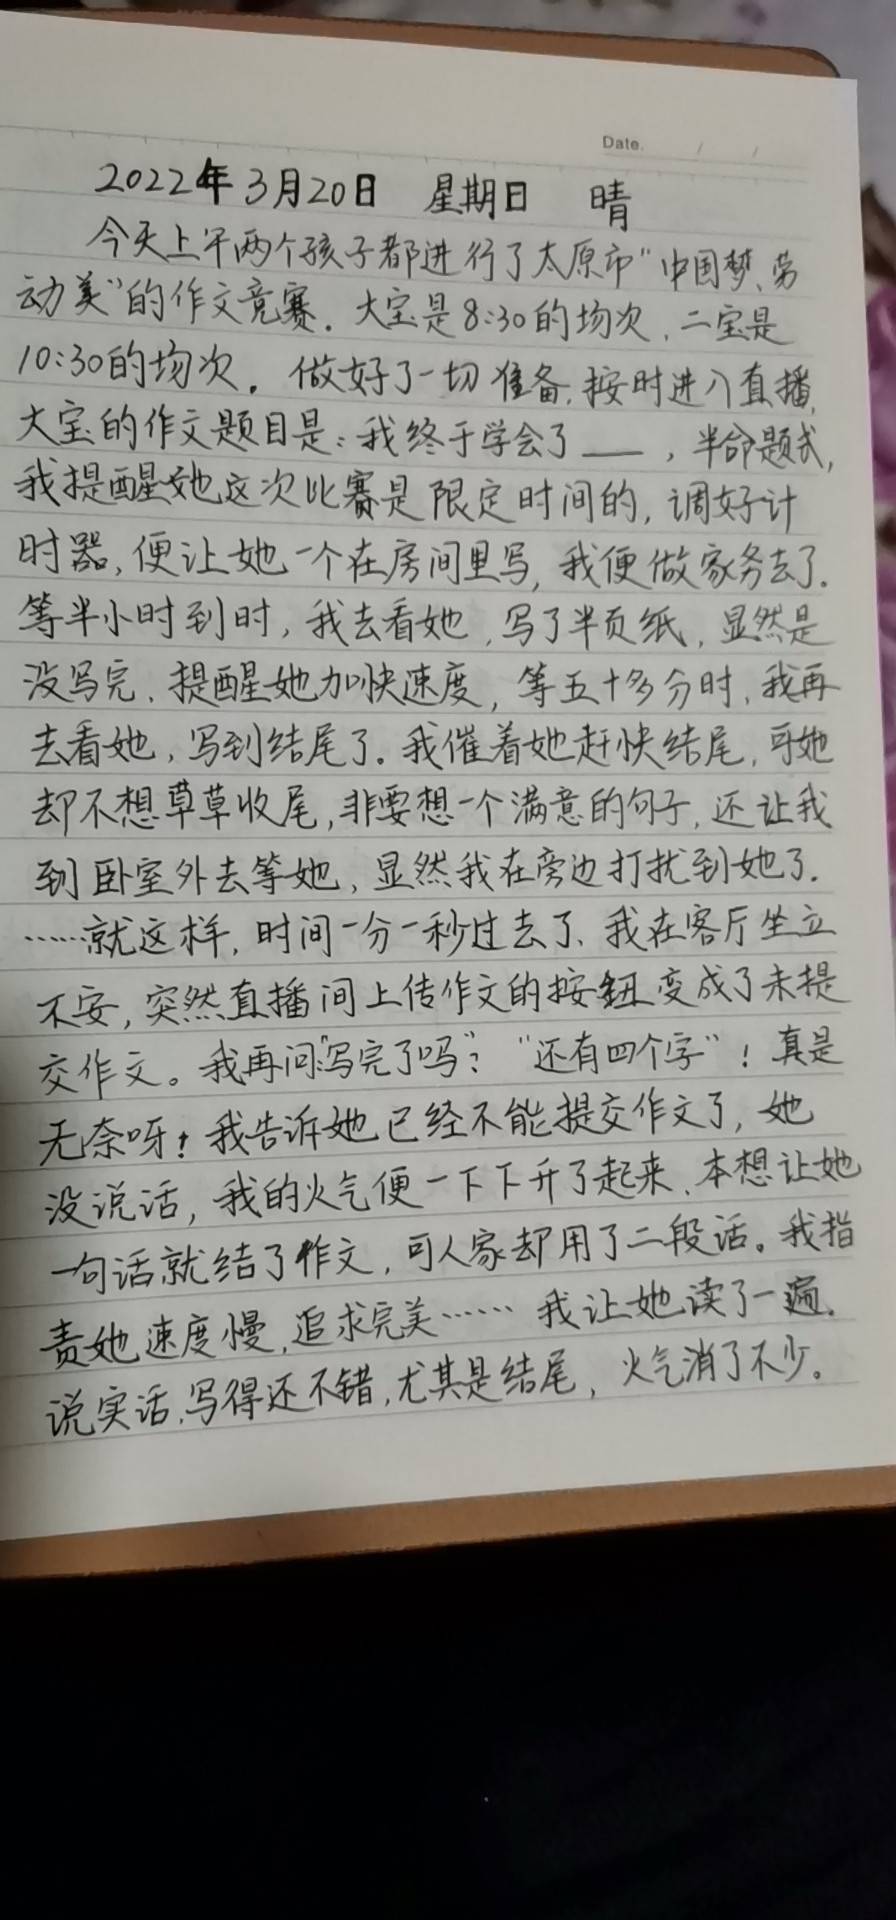 Date. / /
2022年3月20日 星期日 晴
今天上午两个孩子都进行了太原市“中国梦、劳
动美”的作文竞赛。大宝是8:30的场次,二宝是
10:30的场次。做好了一切准备,按时进入直播,
大宝的作文题目是:我终于学会了——,半命题式,
我提醒她这次比赛是限定时间的,调好计
时器,便让她一个在房间里写,我便做家务去了.
等半小时到时,我去看她,写了半页纸,显然是
没写完,提醒她加快速度,等五十多分时,我再
去看她,写到结尾了.我催着她赶快结尾,可她
却不想草草收尾,非要想一个满意的句子,还让我
到卧室外去等她,显然我在旁边打扰到她了.
……就这样,时间一分一秒过去了、我在客厅坐立
不安,突然直播间上传作文的按钮变成了未提
交作文。我再问:“写完了吗”?“还有四个字”!真是
无奈呀!我告诉她已经不能提交作文了,她
没说话,我的火气便一下下升了起来、本想让她
一句话就结了作文,可人家却用了二段话。我指
责她速度慢,追求完美……我让她读了一遍.
说实话,写得还不错,尤其是结尾,火气消了不少。